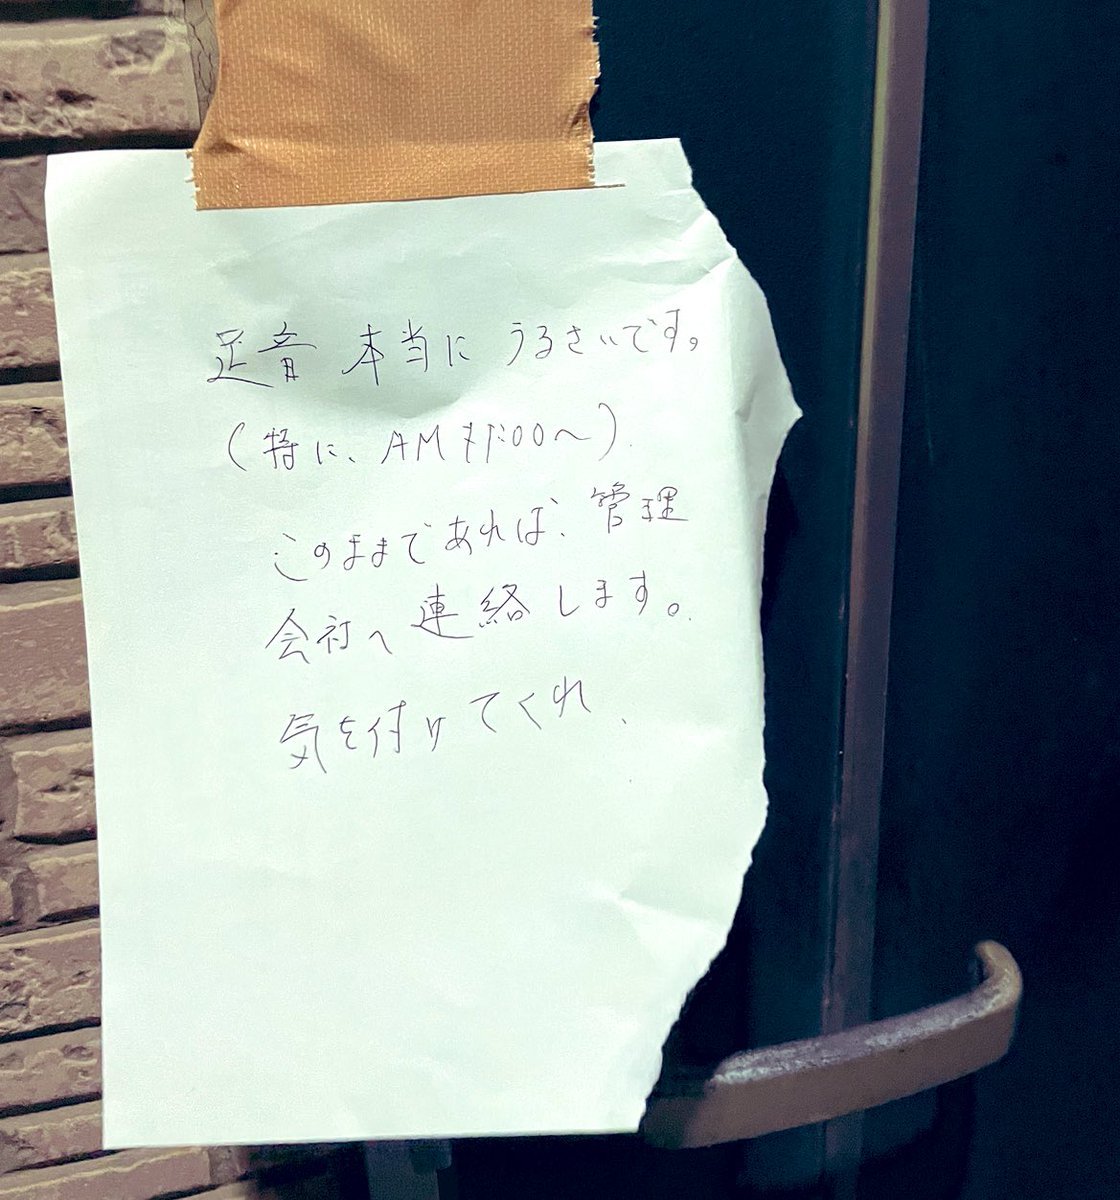 足音 本当に うるさいです。
(特に、AM :00〜)
このままであれば、管理
会社へ連絡します。
気を付けてくれ、